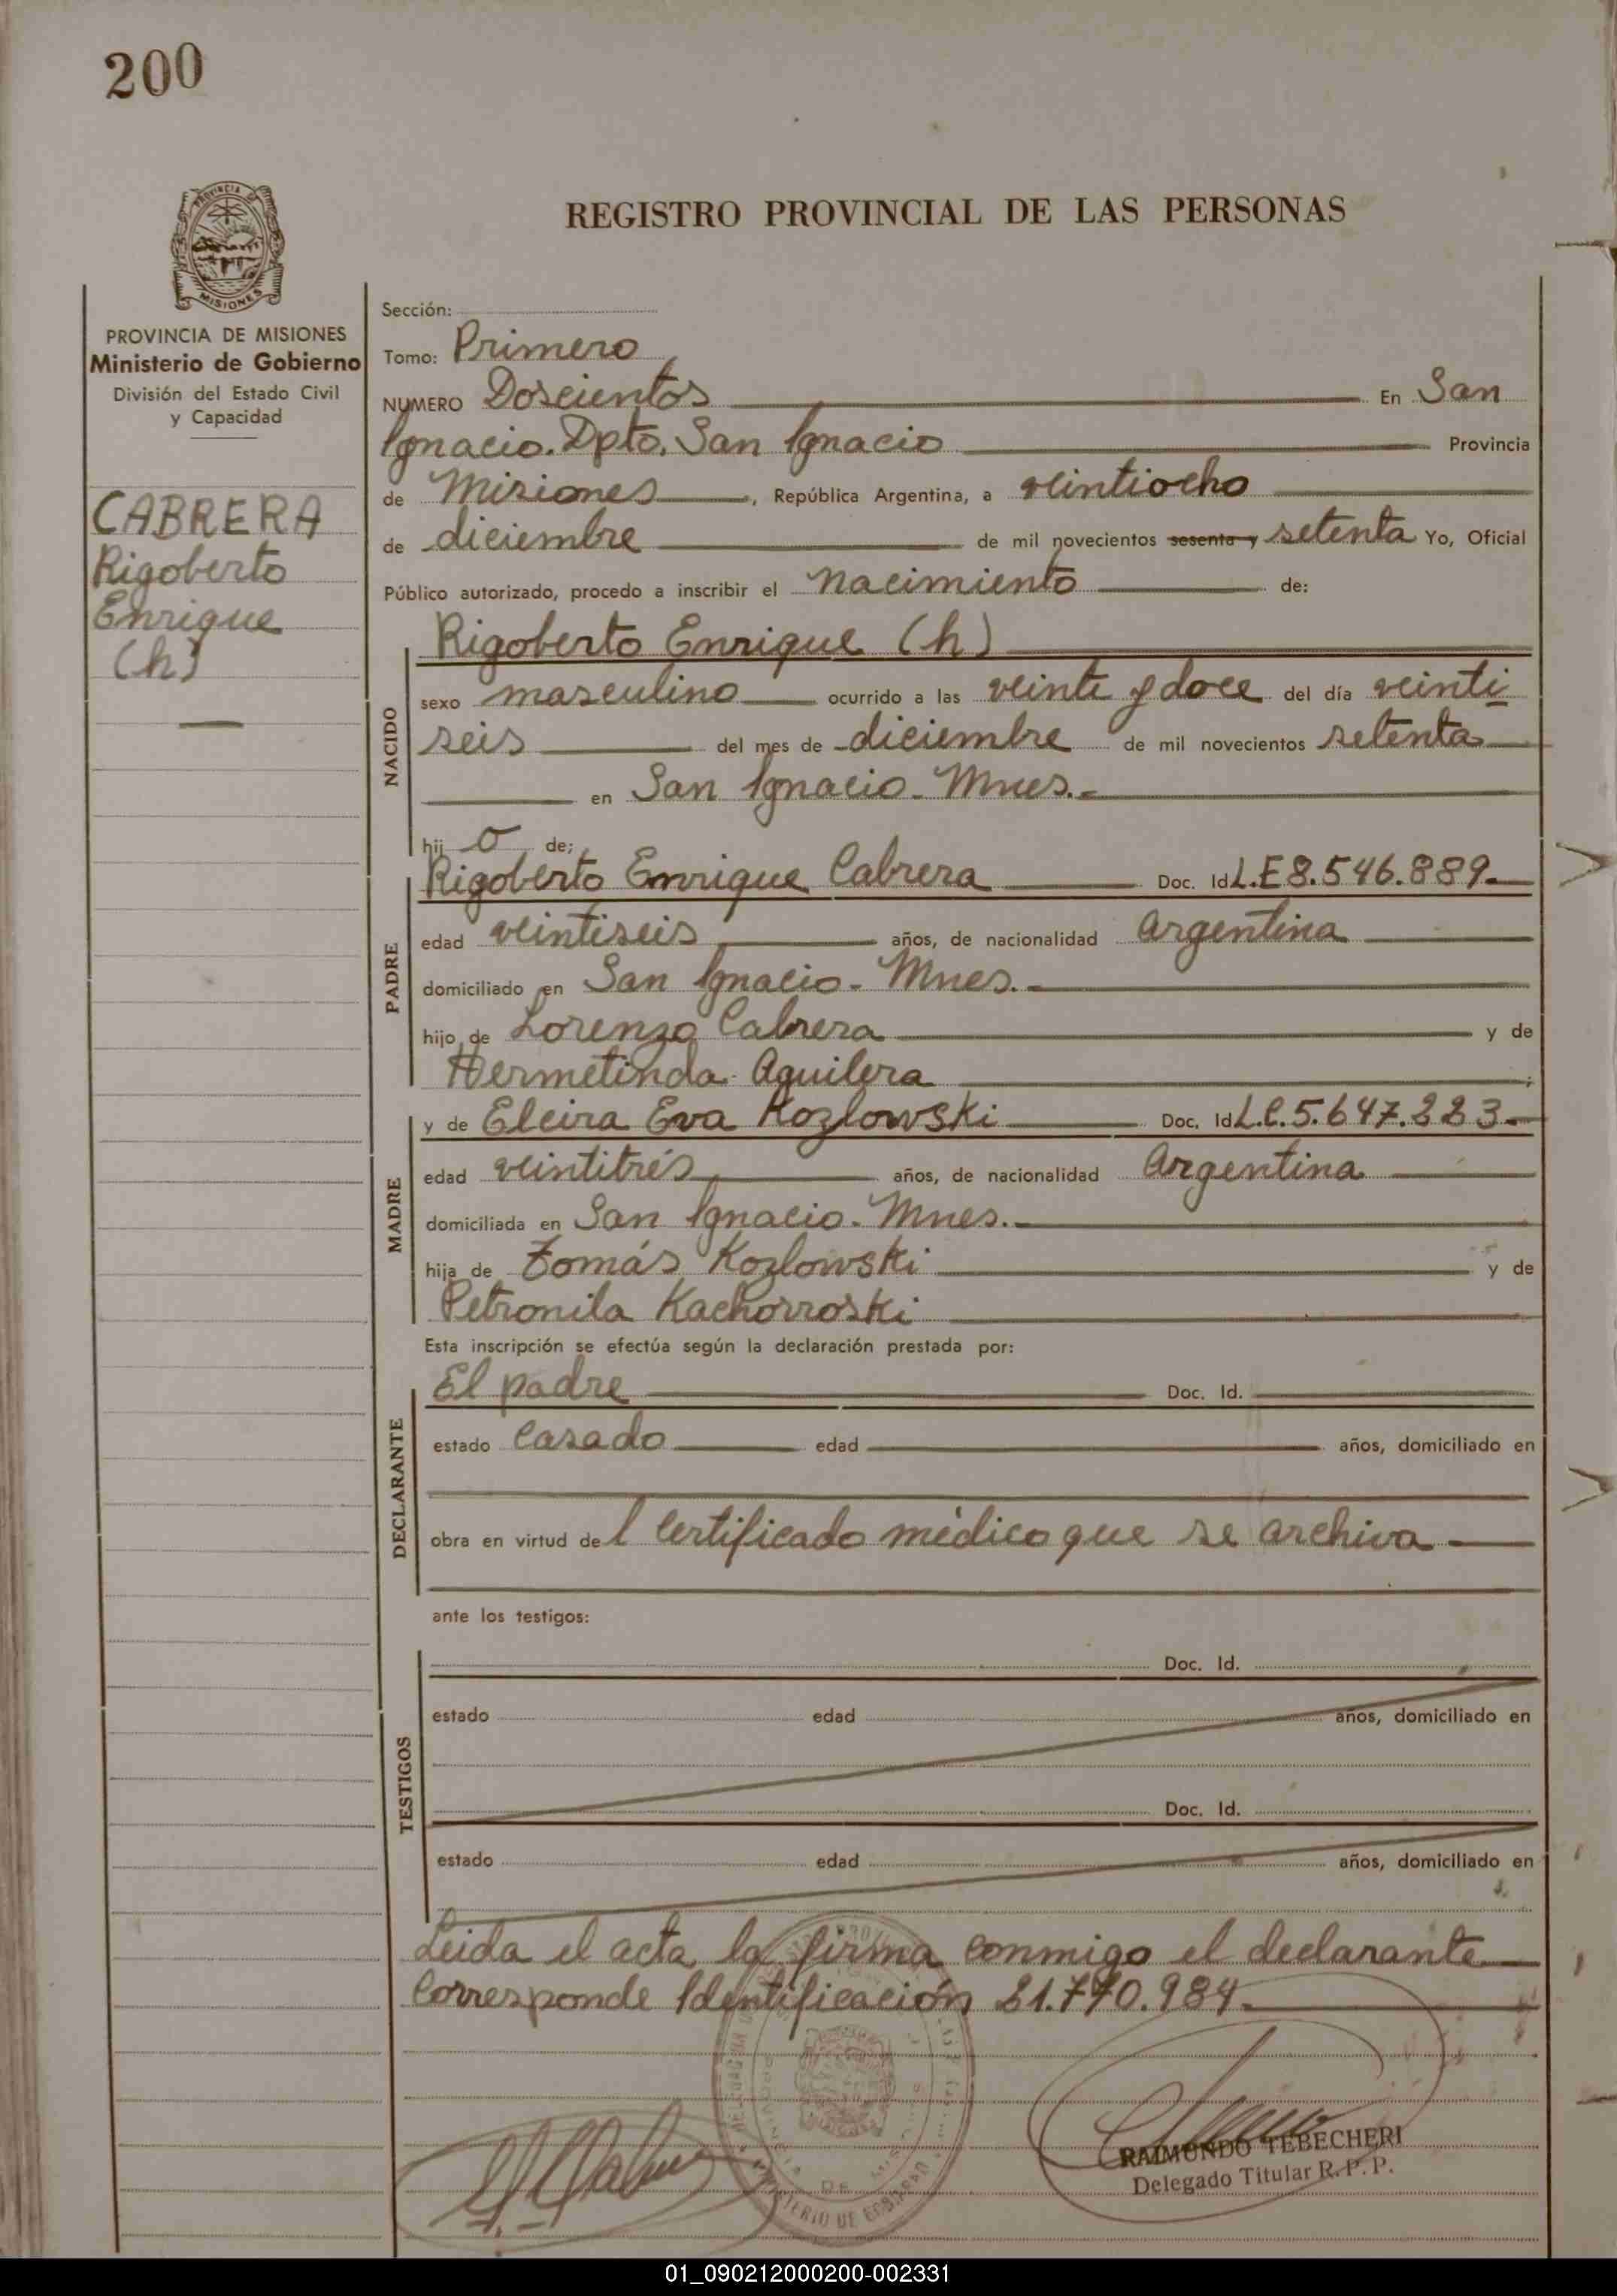 200
PROVINCIA
MISIONES
REGISTRO PROVINCIAL DE LAS PERSONAS
PROVINCIA DE MISIONES
Ministerio de Gobierno
División del Estado Civil
y Capacidad
CABRERA
Rigoberto
Enrique
(h)
Sección:
Tomo: Primero
NUMERO Doscientos En San
Ignacio. Dpto. San Ignacio Provincia
de Misiones, República Argentina, a veintiocho
de diciembre de mil novecientos sesenta y setenta Yo, Oficial
Público autorizado, procedo a inscribir el nacimiento de:
NACIDO
Rigoberto Enrique (h)
sexo masculino ocurrido a las veinte y doce del día veinti
seis del mes de diciembre de mil novecientos setenta
en San Ignacio - Mnes.-
hij o de;
PADRE
Rigoberto Enrique Cabrera Doc. Id L.E 8.546.889-
edad veintiseis años, de nacionalidad Argentina
domiciliado en San Ignacio - Mnes.-
hijo de Lorenzo Cabrera y de
Hermelinda Aguilera ;
MADRE
y de Elcira Eva Kozlowski Doc. Id L.C. 5.647.223-
edad veintitrés años, de nacionalidad Argentina
domiciliada en San Ignacio - Mnes.-
hija de Tomás Kozlowski y de
Petronila Kachorroski
Esta inscripción se efectúa según la declaración prestada por:
DECLARANTE
El padre Doc. Id.
estado Casado edad años, domiciliado en
obra en virtud del certificado médico que se archiva
ante los testigos:
TESTIGOS
Doc. Id.
estado edad años, domiciliado en
Doc. Id.
estado edad años, domiciliado en
Leida el acta la firma conmigo el declarante
Corresponde Identificación 21.770.984-
RAIMUNDO TEBECHERI
Delegado Titular R. P. P.
01_090212000200-002331